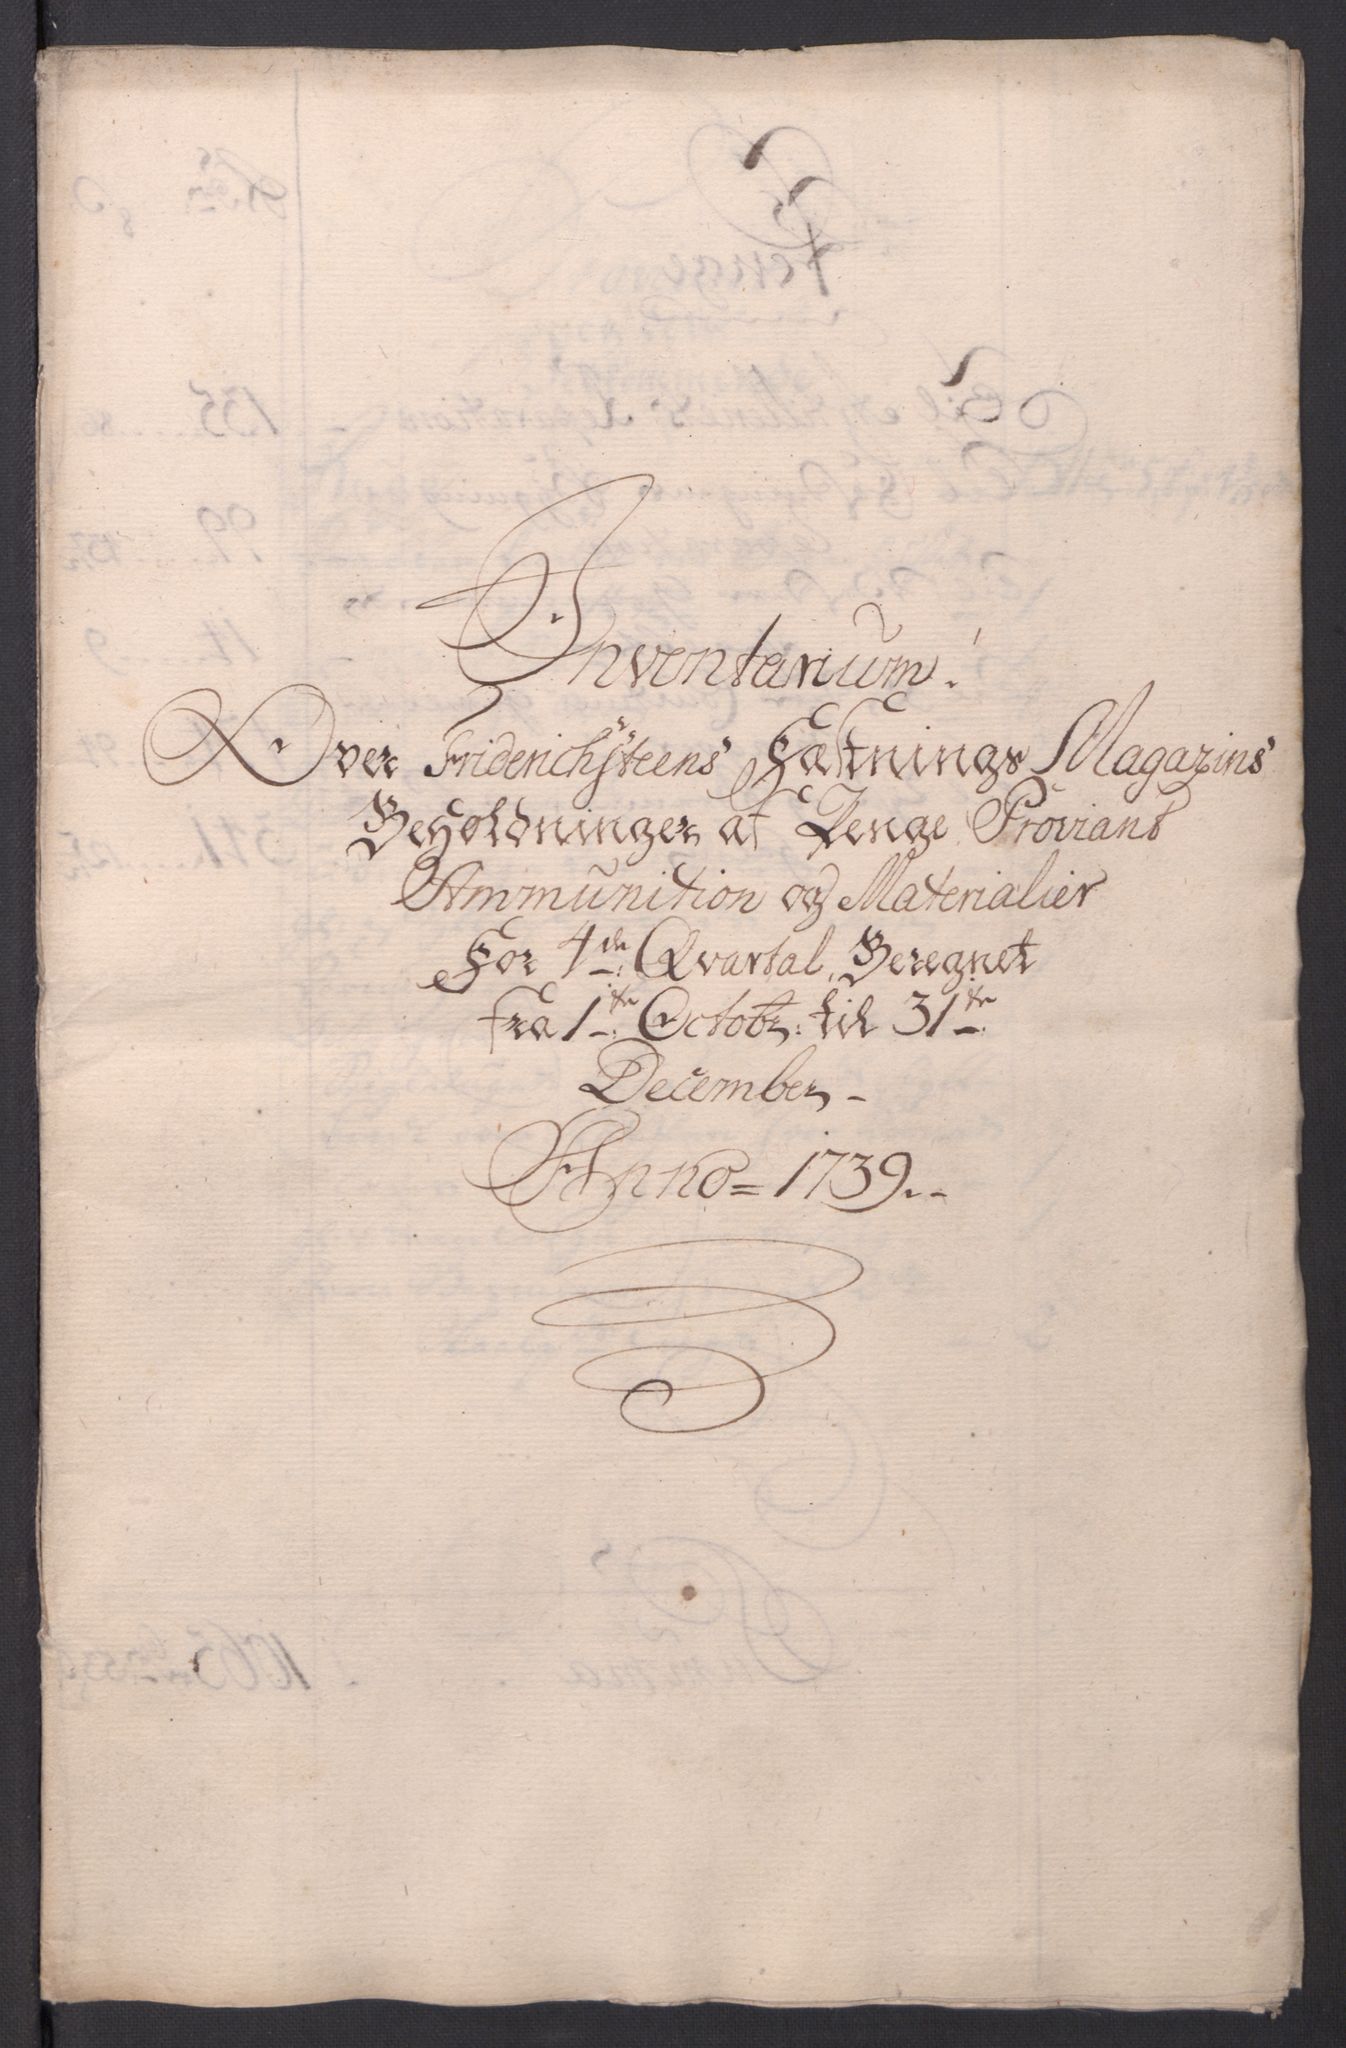 Inventarium!
Over Friderichsteens Fæstnings Magazins
Beholdninger af Penge Proviant
Ammunition og Materialier
For 4de Qvartal, Beregnet
fra 1te Octobr: til 31te
December
Anno = 1739.